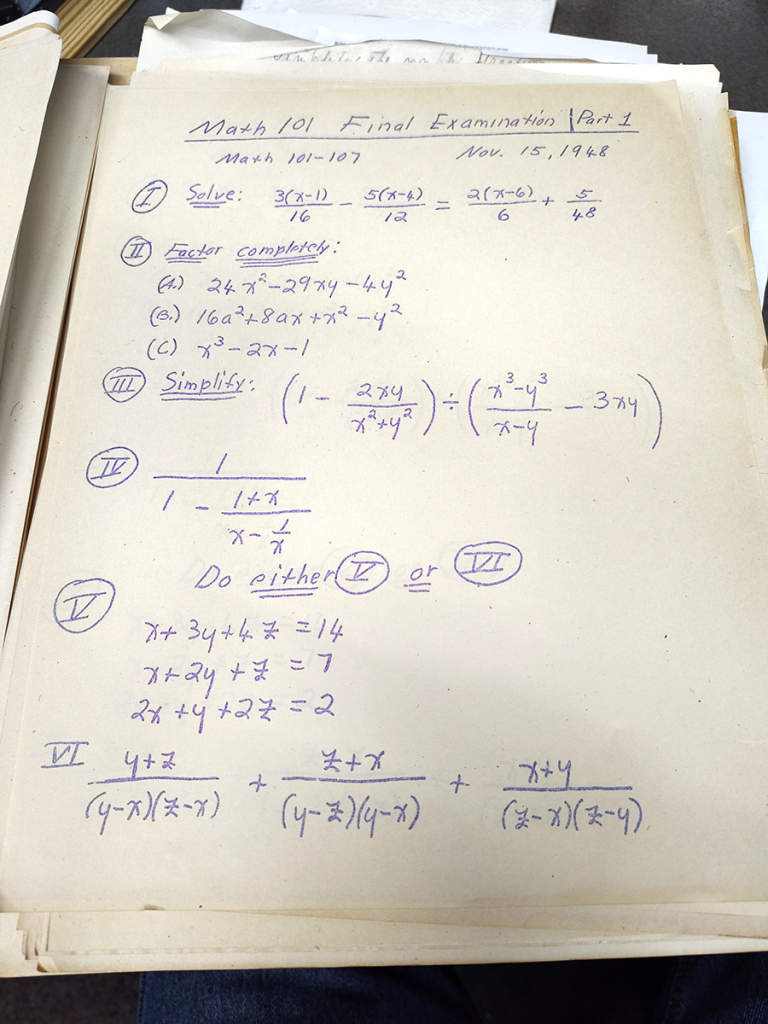 Math 101 Final Examination | Part 1
Math 101-107 Nov. 15, 1948
I Solve: 3(x-1)/16 - 5(x-4)/12 = 2(x-6)/6 + 5/48
II Factor completely:
(A.) 24x²-29xy-4y²
(B.) 16a²+8ax+x²-y²
(C) x³-2x-1
III Simplify: (1 - 2xy/(x²+y²)) ÷ ((x³-y³)/(x-y) - 3xy)
IV 1/(1 - (1+x)/(x - 1/x))
Do either V or VI
V
x+3y+4z=14
x+2y+z=7
2x+y+2z=2
VI (y+z)/((y-x)(z-x)) + (z+x)/((y-z)(y-x)) + (x+y)/((z-x)(z-y))